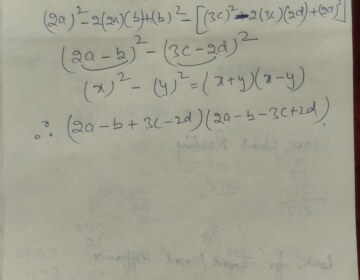 (2a)² - 2(2a)(b) + (b)² - [(3c)² - 2(3c)(2d) + (2d)²]
(2a - b)² - (3c - 2d)²
(x)² - (y)² = (x+y)(x-y)
∴ (2a - b + 3c - 2d)(2a - b - 3c + 2d).